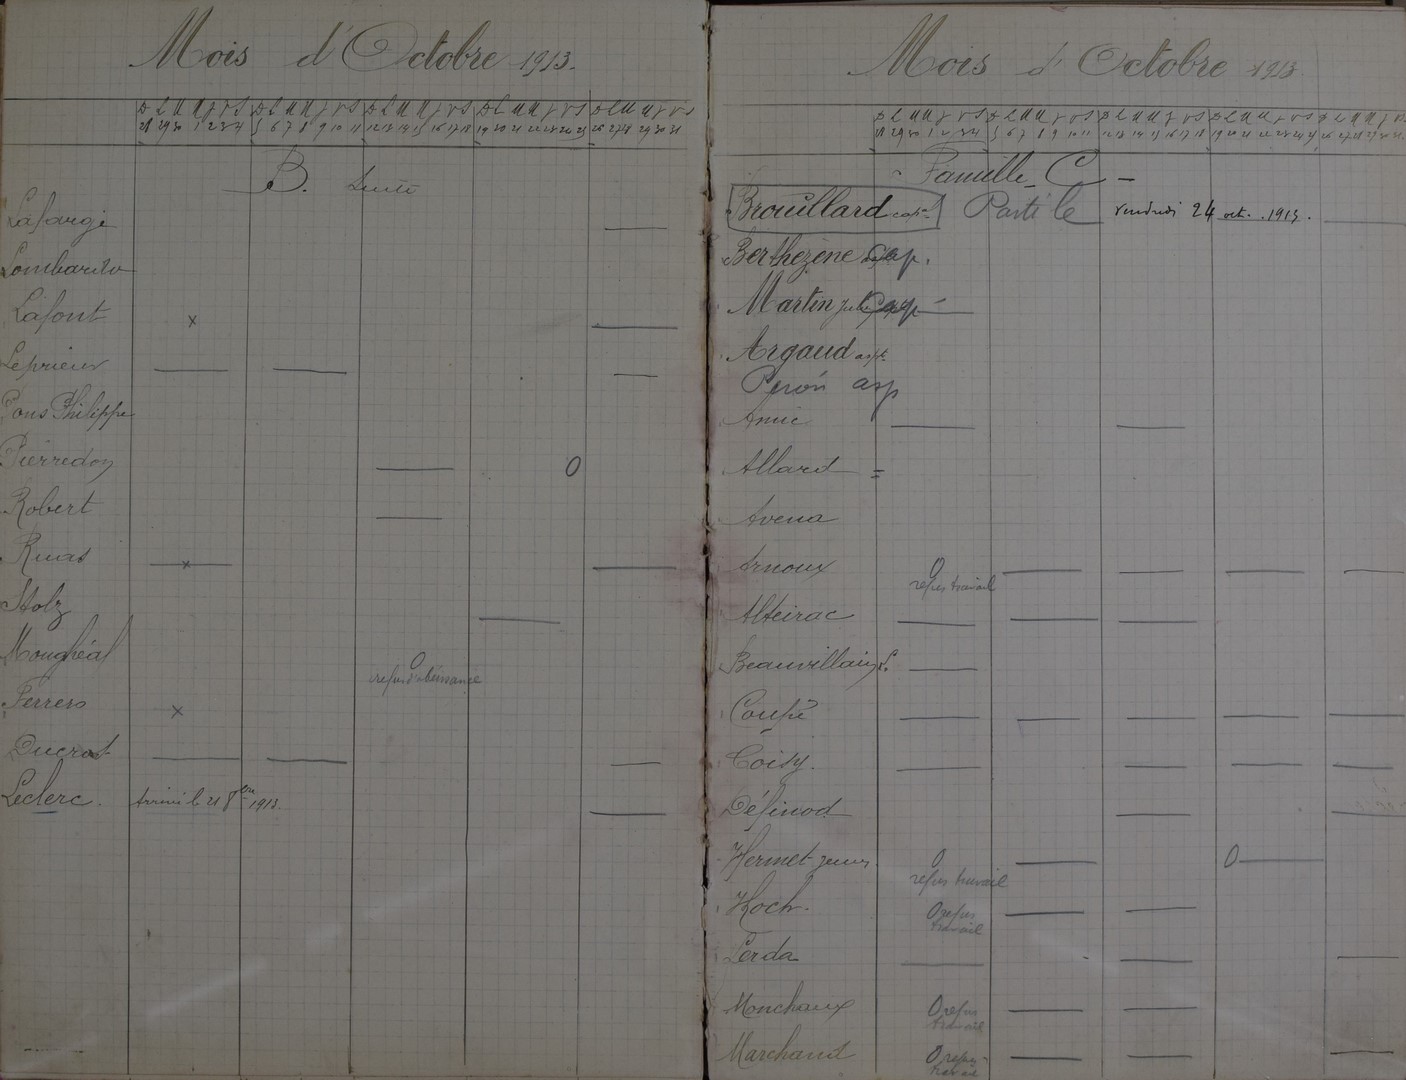 Mois d'Octobre 1913.
D L M M J V S D L M M J V S D L M M J V S D L M M J V S D L M M J V S
28 29 30 1 2 3 4 5 6 7 8 9 10 11 12 13 14 15 16 17 18 19 20 21 22 23 24 25 26 27 28 29 30 31
B. Suite
Lafarge
Lombardo
Lafont x
Leprieur
Pons Philippe
Pierredon O
Robert
Ruas x
Stolz
Monghéal O
refus d'obéissance
Ferrero x
Ducrot
Leclerc. Arrivé le 21 8bre 1913.
Mois d'Octobre 1913
D L M M J V S D L M M J V S D L M M J V S D L M M J V S D L M M J V S
28 29 30 1 2 3 4 5 6 7 8 9 10 11 12 13 14 15 16 17 18 19 20 21 22 23 24 25 26 27 28 29 30 31
Famille C
Brouillard cap. Parti le vendredi 24 oct. 1913.
Berthézène Cap.
Martin Jules Cap
Argaud asp.
Peron asp
Amic
Allard =
Avena
Arnoux O
refus travail
Alteirac
Beauvillain
Coupé
Coisy.
Définod
Hermet jeune O O
refus travail
Hoch. O refus
travail
Lerda
Monchaux O refus
travail
Marchand O refus
travail